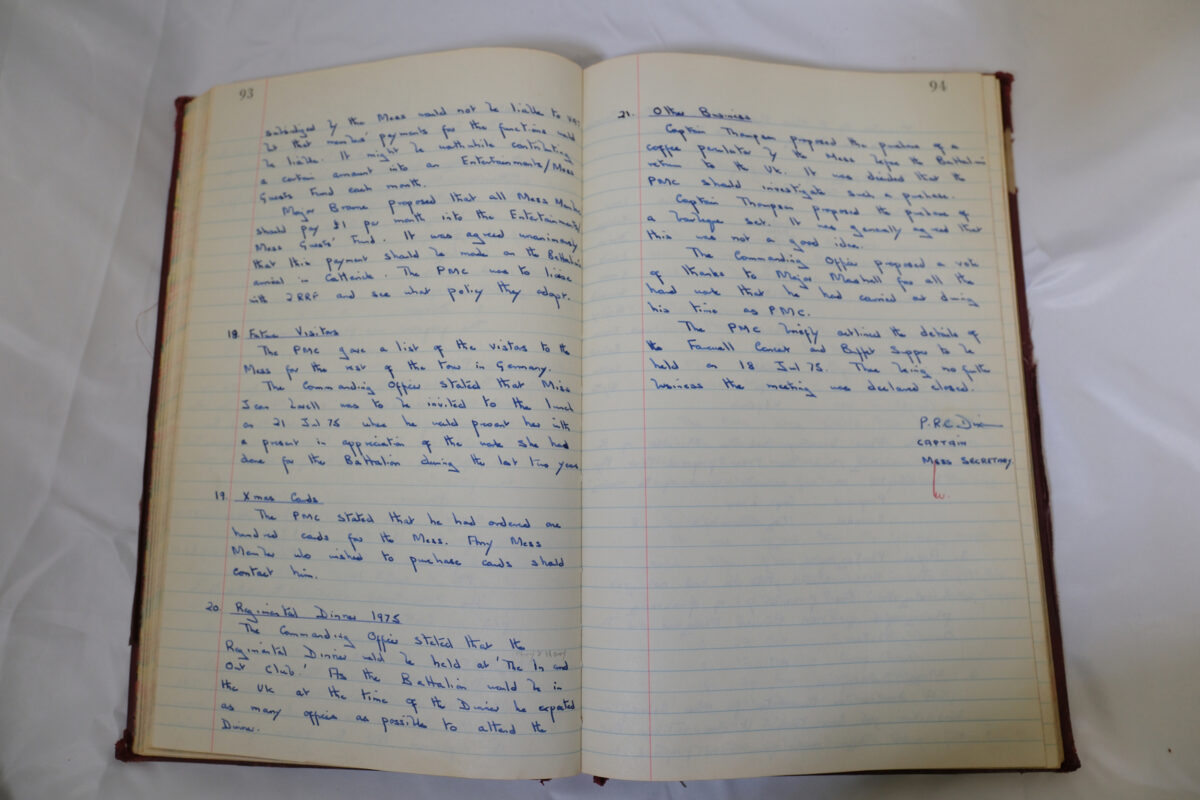 93
subsidized by the Mess would not be liable to VAT
but that members' payments for the functions would
be liable. It might be worthwhile contributing
a certain amount into an Entertainments/Mess
Guests Fund each month.
Major Browne proposed that all Mess Members
should pay £1 per month into the Entertainments
Mess Guests' Fund. It was agreed unanimously
that this payment should be made on the Battalion's
arrival in Catterick. The PMC was to liaise
with 2RRF and see what policy they adopt.
18. Future Visitors
The PMC gave a list of the vistors to the
Mess for the rest of the tour in Germany.
The Commanding Officer stated that Miss
Jean was to be invited to the lunch
on 21 Jul 75 where he would present her with
a present in appreciation of the work she had
done for the Battalion during the last two years
19. Xmas Cards
The PMC stated that he had ordered one
hundred cards for the Mess. Any Mess
Member who wished to purchase cards should
contact him.
20. Regimental Dinner 1975
The Commanding Officer stated that the
Regimental Dinner would be held at 'The In and
Out Club.' As the Battalion would be in
the UK at the time of the Dinner he expected
as many officers as possible to attend the
Dinner.
94
21. Other Business
Captain Thompson proposed the purchase of a
coffee percolator by the Mess before the Battalion
return to the UK. It was decided that the
PMC should investigate such a purchase.
Captain Thompson proposed the purchase of
a barbeque set. It was generally agreed that
this was not a good idea.
The Commanding Officer proposed a vote
of thanks to Major Marshall for all the
hard work that he had carried out during
his time as PMC.
The PMC briefly outlined the details of
the Farewell Concert and Buffet Supper to be
held on 18 Jul 75. There being no further
business the meeting was declared closed.
P.R.C.
CAPTAIN
MESS SECRETARY.